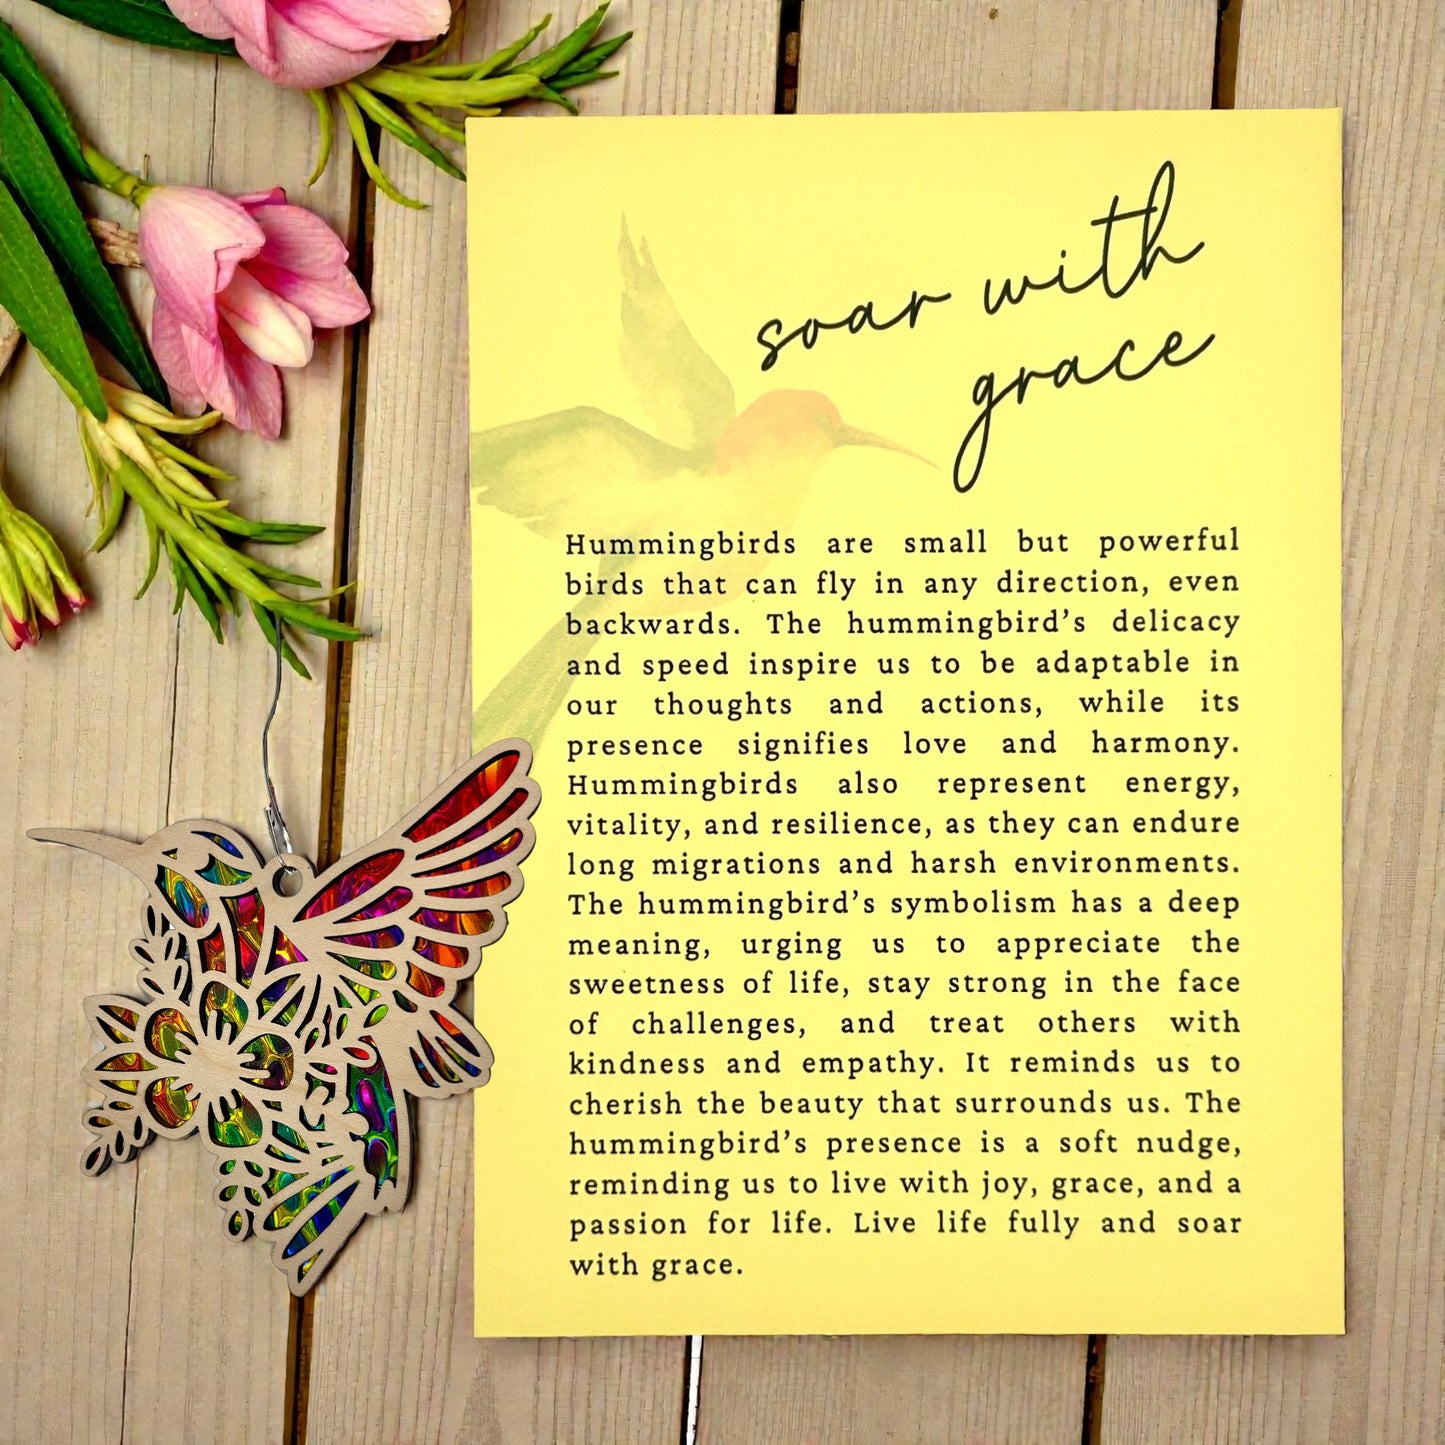 soar with
grace
Hummingbirds are small but powerful
birds that can fly in any direction, even
backwards. The hummingbird’s delicacy
and speed inspire us to be adaptable in
our thoughts and actions, while its
presence signifies love and harmony.
Hummingbirds also represent energy,
vitality, and resilience, as they can endure
long migrations and harsh environments.
The hummingbird’s symbolism has a deep
meaning, urging us to appreciate the
sweetness of life, stay strong in the face
of challenges, and treat others with
kindness and empathy. It reminds us to
cherish the beauty that surrounds us. The
hummingbird’s presence is a soft nudge,
reminding us to live with joy, grace, and a
passion for life. Live life fully and soar
with grace.